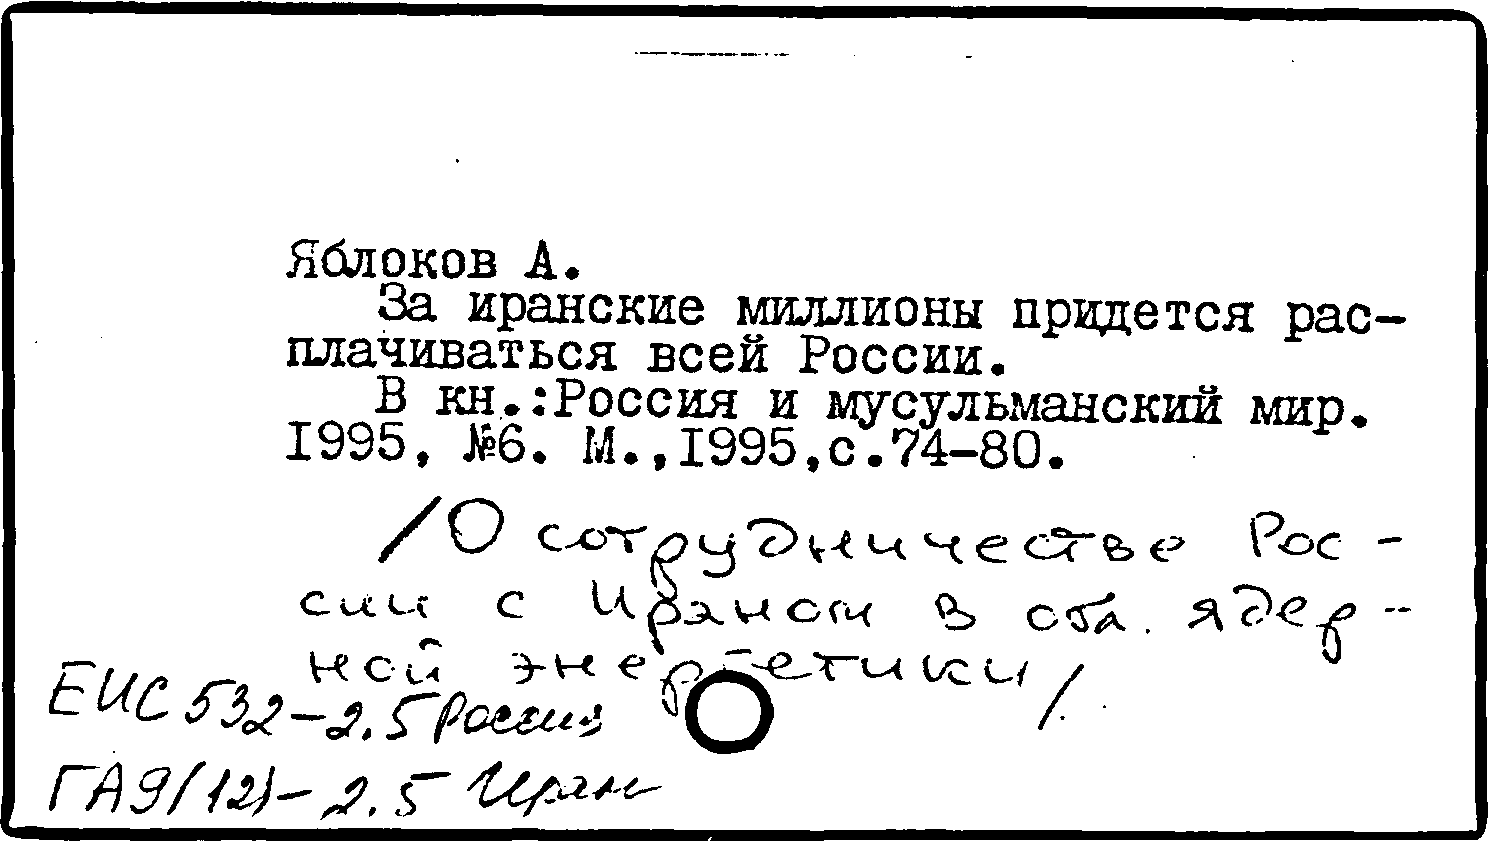 Яблоков А.
За иранские миллионы придется рас-
плачиваться всей России.
В кн.:Россия и мусульманский мир.
I995, №6. М.,I995,с.74-80.
/О сотрудничестве Рос-
сии с Ираном в обл. ядер-
ной энергетики/
ЕИС 532-2.5 Россия
ГА9/(12)-2.5 Иран